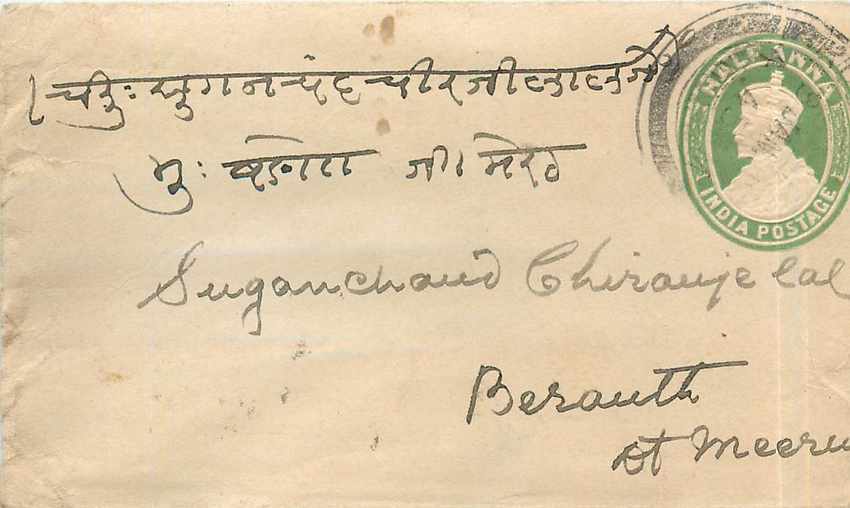 चीरु: सुगनचंद चीरजीलाल जी
मु: बडोत जी मेरठ
HALF ANNA
INDIA POSTAGE
Suganchand Chiranje Lal
Berauth
Dt Meeru